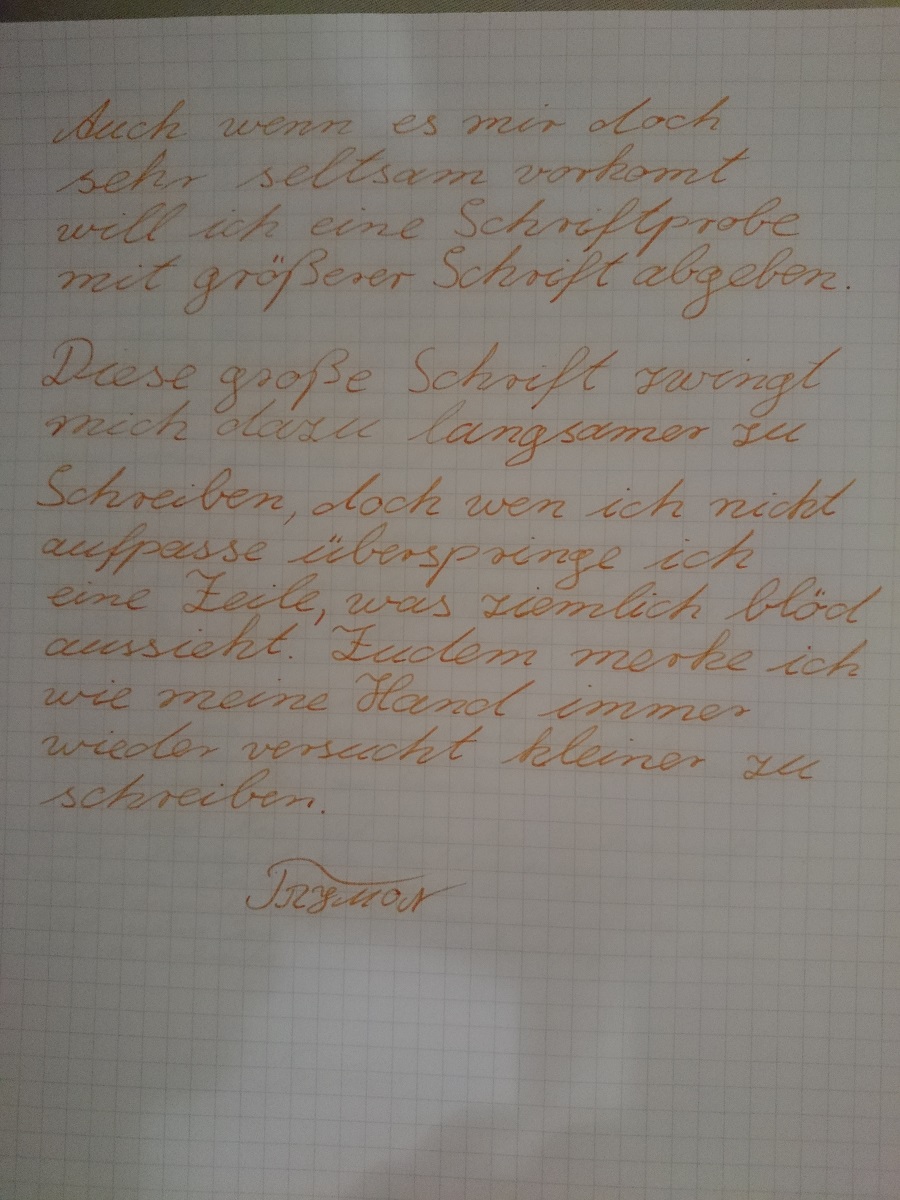 Auch wenn es mir doch
sehr seltsam vorkomt
will ich eine Schriftprobe
mit größerer Schrift abgeben.
Diese große Schrift zwingt
mich dazu langsamer zu
Schreiben, doch wen ich nicht
aufpasse überspringe ich
eine Zeile, was ziemlich blöd
aussieht. Zudem merke ich
wie meine Hand immer
wieder versucht kleiner zu
schreiben.